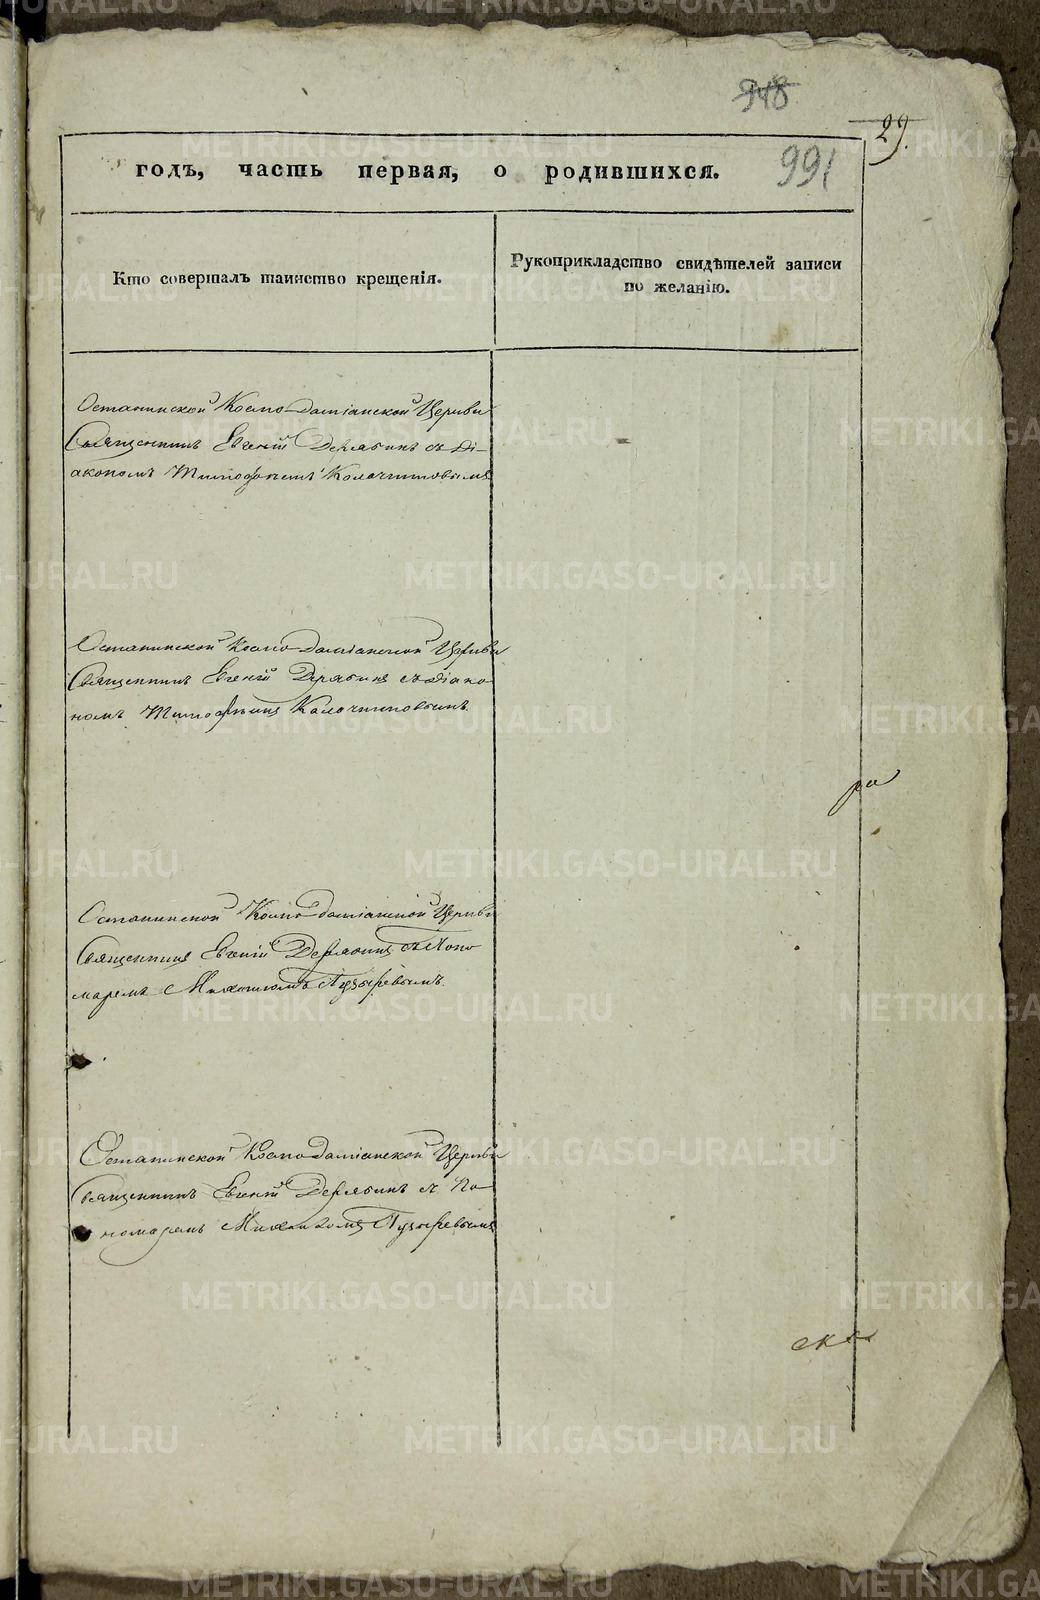 948
29.
991
годъ, часть первая, о родившихся.
Кто совершалъ таинство крещенія.
Рукоприкладство свидѣтелей записи
по желанію.
Останинской Космо-Даміанской Церкви
Священникъ Евгеній Дерябинъ съ Ді-
акономъ Тимофѣемъ
Останинской Космо Даміанской Церкви
Священникъ Евгеній Дерябинъ съ Діако
номъ Тимофѣемъ
Останинской Космо Даміанской Церкви
Священникъ Евгеній Дерябинъ съ Поно
маремъ Пузыревымъ.
Останинской Космо Даміанской Церкви
Священникъ Евгеній Дерябинъ съ По
номаремъ Пузыревымъ
ра
METRIKI.GASO-URAL.RU